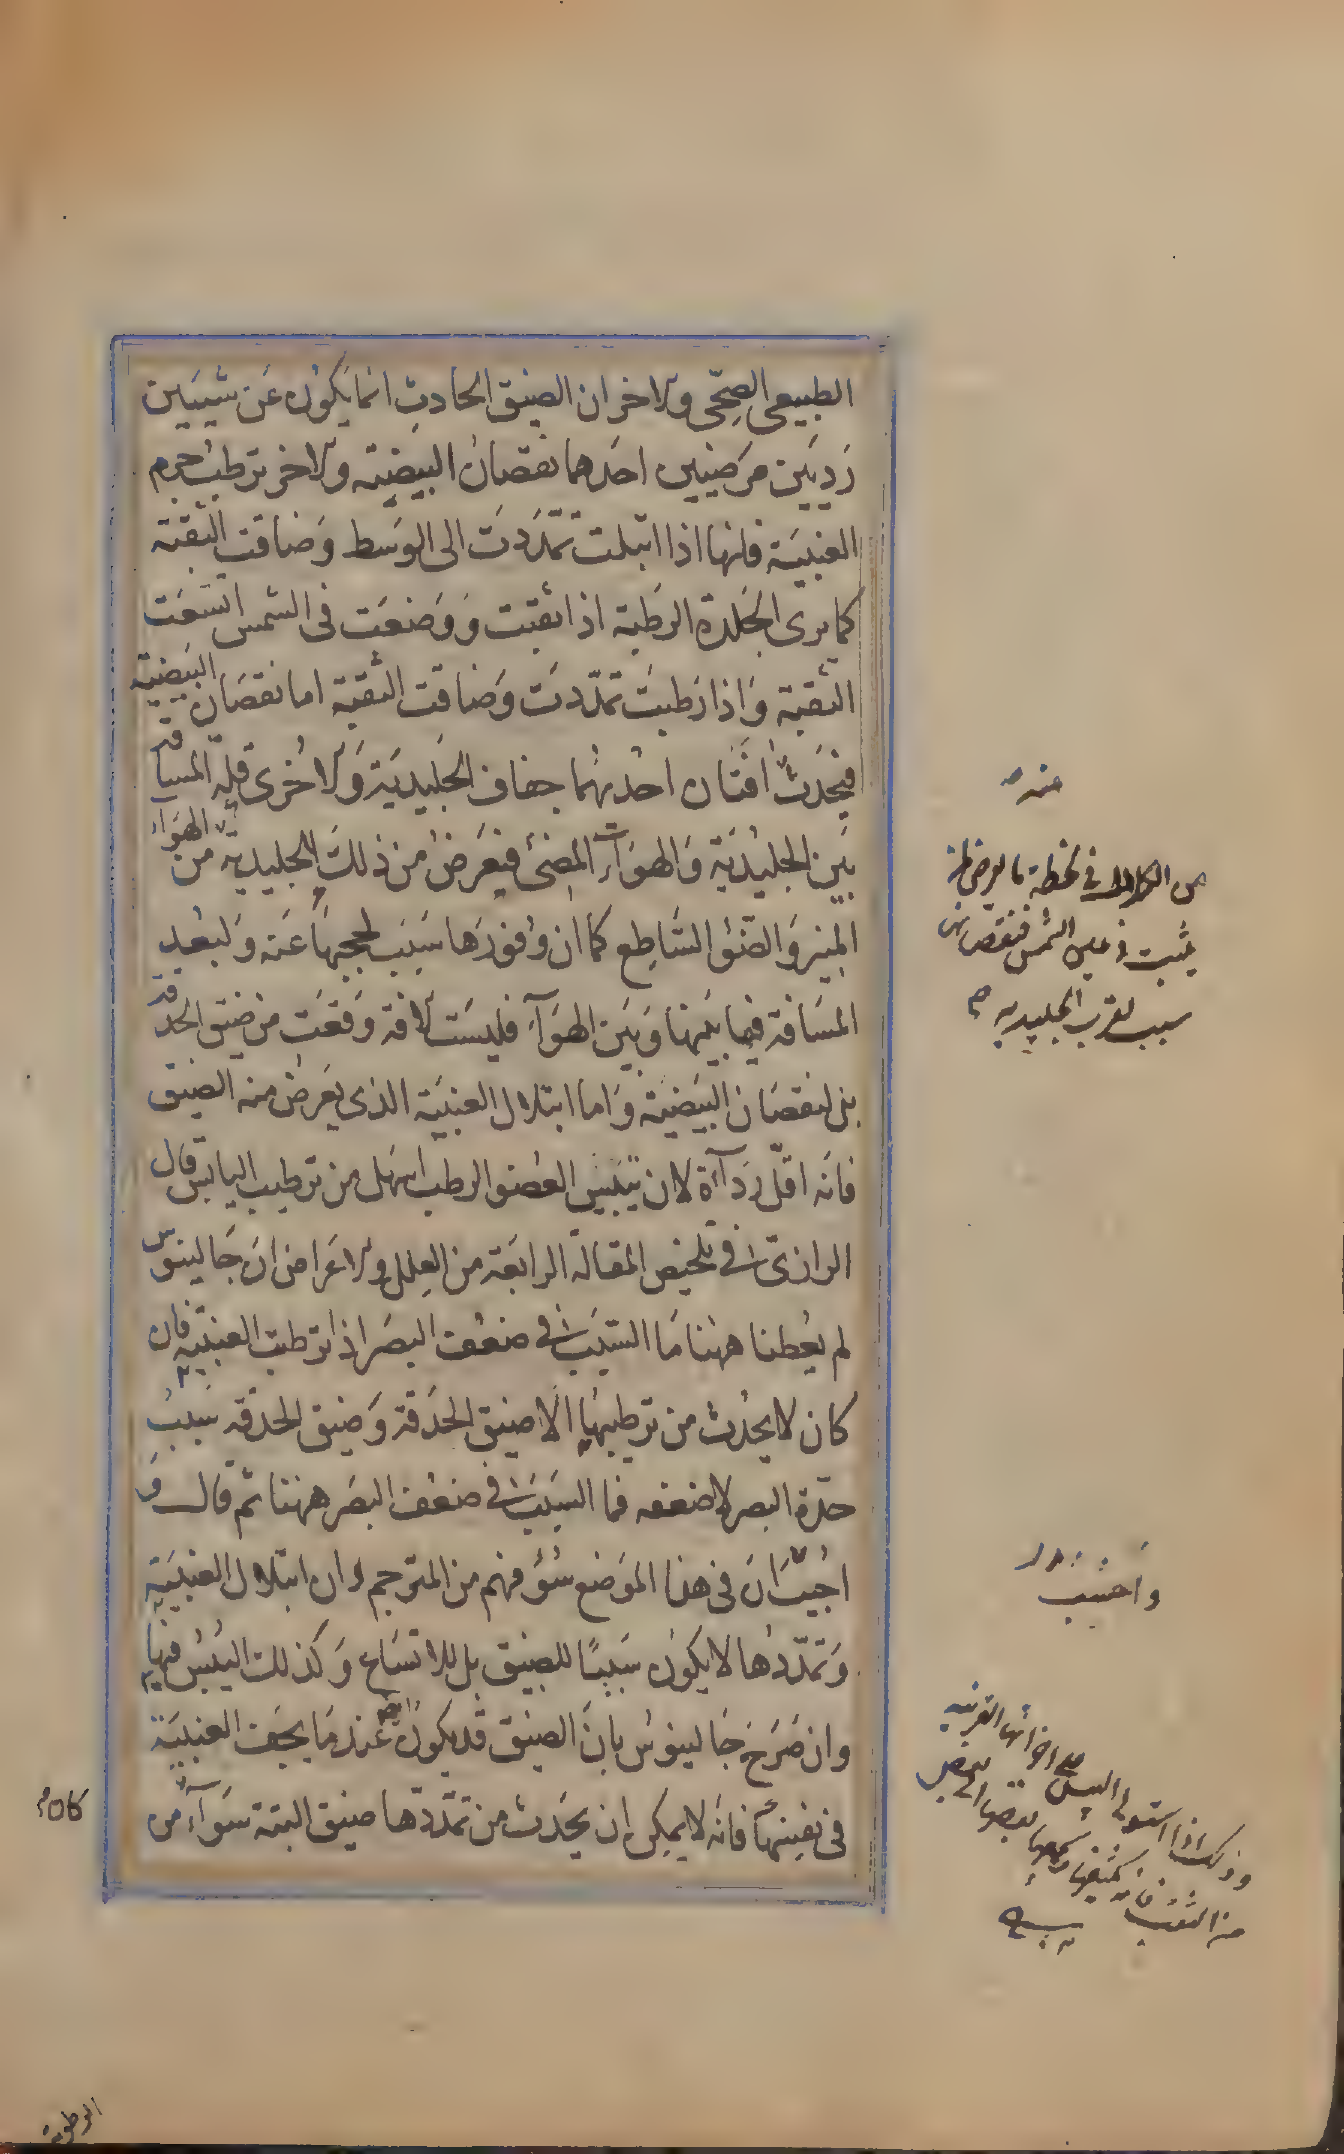 الطبيعي الصحّي والاخر ان الضيق الحادث انما يكون عن شيئين
رديين مرضيين احدهما نقصان البيضية والاخر ترطب جرم
العنبية فانها اذا ابتلت تمدّدت الى الوسط وضاقت الثقبة
كما يرى الجلدة الرطبة اذا ثقبت ووضعت في الشمس اتسعت
الثقبة واذا رطبت تمدّدت وضاقت الثقبة اما نقصان البيضية
فيحدث افتان احدٰيهما جفاف الجليدية والاخرى قلة المسافة
بين الجليدية والهوآء المضئ فيعرض من ذلك للجليدية من الهوآء
المنير والضوء الساطع كما ان وفورها سبب لحجبها عنه ولبعد
المسافة فيما بينها وبين الهوآء فليست الافة وقعت من ضيق الحدقة
بل لنقصان البيضية واما ابتلال العنبية الذى يعرض منه الضيق
فانه اقلّ ردآءة لان تيبيس العضو الرطب اسهل من ترطيب اليابس قال
الرازىّ في تلخيص المقالة الرابعة من العلل والاعراض ان جالينوس
لم يعطنا ههنا ما السبب في ضعف البصر اذا ترطبت العنبية فان
كان لا يحدث من ترطيبها الا ضيق الحدقة وضيق الحدقة سبب
حدّة البصر لا ضعفه فما السبب في ضعف البصر ههنا ثم قال و
احبّ ان في هذا الموضع سوٴ فهم من المترجم لان ابتلال العنبية
وتمدّدها لا يكون سببًا للضيق بل للاتساع وكذلك اليبس فيها
وان صرح جالينوس بان الضيق قد يكون ايضا عند ما يجف العنبية
في نفسها فانه لا يمكن ان يحدث من تمدّدها ضيق البتة سوآء من
عنه
من الكلال في لحظة ما يعرض لمن
يثبت في عين الشمس فنقصانها
سبب لقرب الجليدية
واحسب
وذلك اذا استولى اليبس على اجزائها القريبة
من الثقب فانه يكثفها ويجمعها بعضها الى بعض
الرطوبة